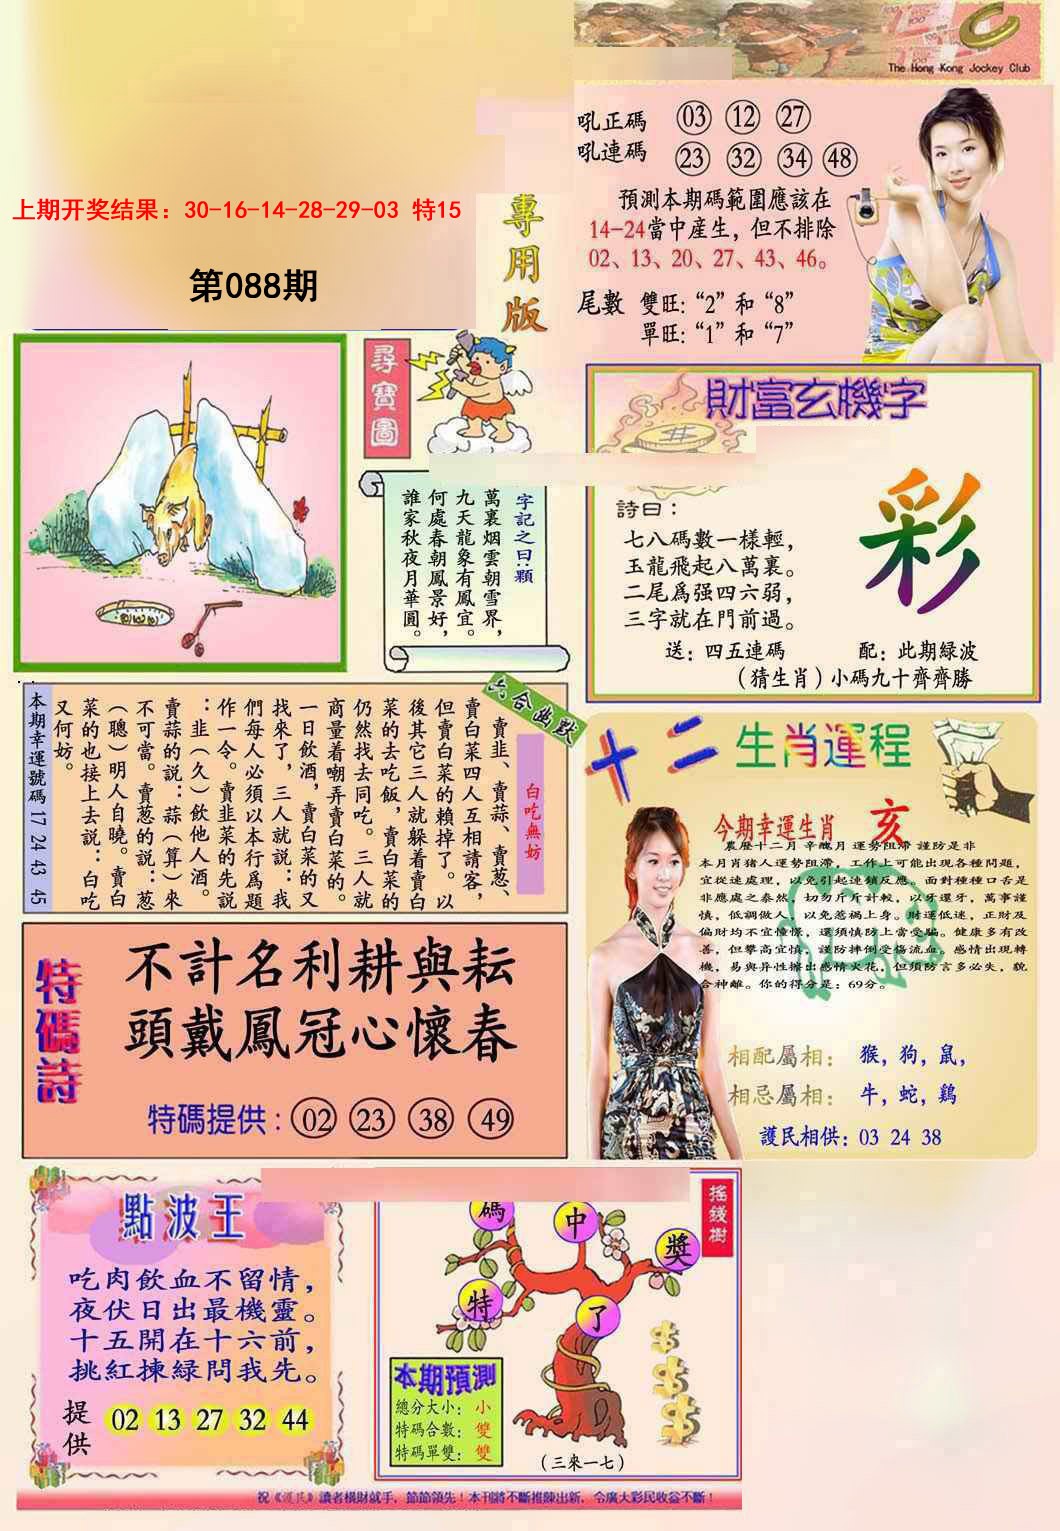 The Hong Kong Jockey Club
上期开奖结果：30-16-14-28-29-03 特15
第088期
專用版
吼正碼 03 12 27
吼連碼 23 32 34 48
預測本期碼範圍應該在
14-24當中産生，但不排除
02、13、20、27、43、46。
尾數 雙旺：“2”和“8”
單旺：“1”和“7”
尋寶圖
字記之曰：顆
萬裏烟雲朝雪界，
九天龍象有鳳宜。
何處春朝鳳景好，
誰家秋夜月華圓。
財富玄機字
彩
詩曰：
七八碼數一樣輕，
玉龍飛起八萬裏。
二尾爲强四六弱，
三字就在門前過。
送：四五連碼 配：此期緑波
（猜生肖）小碼九十齊齊勝
六合幽默
白吃無妨
賣韭、賣蒜、賣葱、
賣白菜四人互相請客，
但賣白菜的賴掉了。以
後其它三人就躲着賣白
菜的去吃飯，賣白菜的
仍然找去同吃。三人就
商量着嘲弄賣白菜的。
一日飲酒，賣白菜的又
找來了，三人就説：我
們每人必須以本行爲題
作一令。賣韭菜的先説
：韭（久）飲他人酒。
賣蒜的説：蒜（算）來
不可當。賣葱的説：葱
（聰）明人自曉。賣白
菜的也接上去説：白吃
又何妨。
本期幸運號碼 17 24 43 45
十二生肖運程
今期幸運生肖 亥
農歷十二月 辛醜月 運勢阻滯 謹防是非
本月肖猪人運勢阻滯，工作上可能出現各種問題，
宜從速處理，以免引起連鎖反應。面對種種口舌是
非應處之泰然，切勿斤斤計較，以牙還牙，萬事謹
慎，低調做人，以免惹禍上身。財運低迷，正財及
偏財均不宜憧憬，還須慎防上當受騙。健康多有改
善，但攀高宜慎，謹防摔倒受傷流血。感情出現轉
機，易與异性擦出感情火花，但須防言多必失，貌
合神離。你的得分是：69分。
相配屬相： 猴，狗，鼠，
相忌屬相： 牛，蛇，鷄
護民相供：03 24 38
特碼詩
不計名利耕與耘
頭戴鳳冠心懷春
特碼提供：02 23 38 49
點波王
吃肉飲血不留情，
夜伏日出最機靈。
十五開在十六前，
挑紅揀緑問我先。
提供 02 13 27 32 44
搖錢樹
碼 中 獎
特 了
本期預測
總分大小：小
特碼合數：雙
特碼單雙：雙
（三來一七）
祝《護民》讀者橫財就手，節節領先！本刊將不斷推陳出新，令廣大彩民收益不斷！